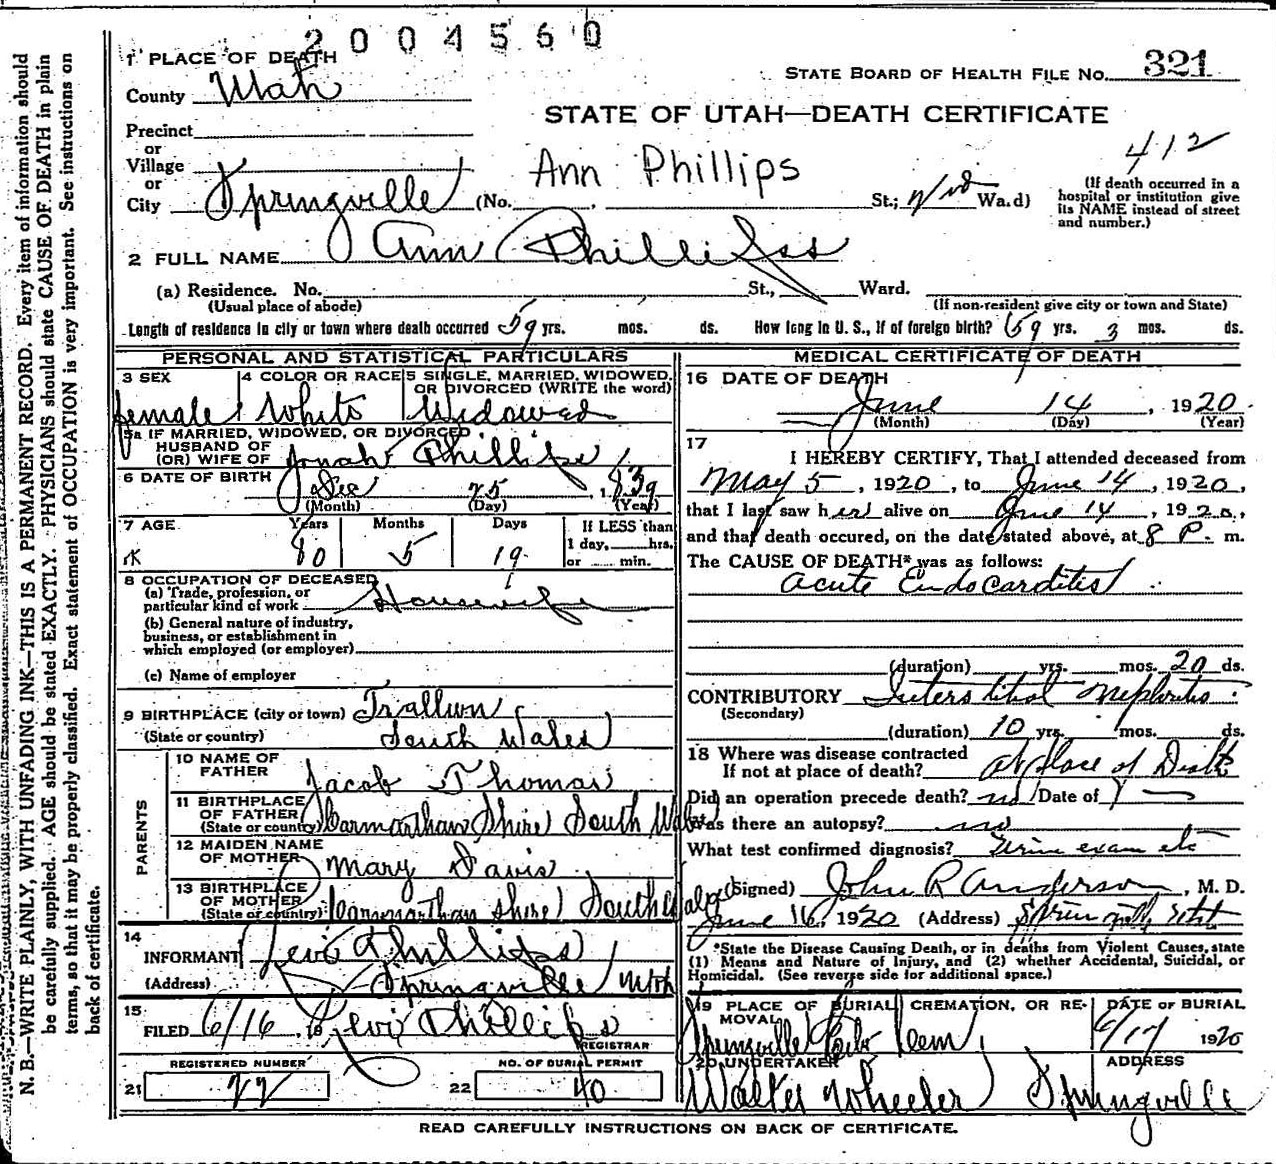 2004560
1 PLACE OF DEATH
STATE BOARD OF HEALTH FILE NO. 321
County Utah
STATE OF UTAH—DEATH CERTIFICATE
Precinct
or
Village
or
City Springville (No. , St.; Ward)
Ann Phillips
412
(If death occurred in a hospital or institution give its NAME instead of street and number.)
2 FULL NAME Ann Phillips
(a) Residence. No. St., Ward.
(Usual place of abode) (If non-resident give city or town and State)
Length of residence in city or town where death occurred 59 yrs. mos. ds. How long in U. S., if of foreign birth? 59 yrs. 3 mos. ds.
PERSONAL AND STATISTICAL PARTICULARS
3 SEX
female
4 COLOR OR RACE
White
5 SINGLE, MARRIED, WIDOWED, OR DIVORCED (WRITE the word)
Widowed
5a IF MARRIED, WIDOWED, OR DIVORCED
HUSBAND OF
(OR) WIFE OF Jonah Phillips
6 DATE OF BIRTH Dec 25, 1839
(Month) (Day) (Year)
7 AGE Years Months Days If LESS than
80 5 19 1 day, hrs.
or min.
8 OCCUPATION OF DECEASED
(a) Trade, profession, or
particular kind of work Housewife
(b) General nature of industry,
business, or establishment in
which employed (or employer)
(c) Name of employer
9 BIRTHPLACE (city or town) Trallwn
(State or country) South Wales
PARENTS
10 NAME OF FATHER Jacob Thomas
11 BIRTHPLACE OF FATHER (State or country) Carmarthan Shire South Wales
12 MAIDEN NAME OF MOTHER Mary Davis
13 BIRTHPLACE OF MOTHER (State or country) Carmarthan Shire South Wales
14
INFORMANT Levi Phillips
(Address) Springville Utah
15
FILED 6/16, 19 Levi Phillips
REGISTRAR
REGISTERED NUMBER
21 22
NO. OF BURIAL PERMIT
22 40
MEDICAL CERTIFICATE OF DEATH
16 DATE OF DEATH
June 14, 1920
(Month) (Day) (Year)
17
I HEREBY CERTIFY, That I attended deceased from
May 5, 1920, to June 14, 1920,
that I last saw her alive on June 14, 1920,
and that death occured, on the date stated above, at 8 P. m.
The CAUSE OF DEATH* was as follows:
Acute Endocarditis
(duration) yrs. mos. 20 ds.
CONTRIBUTORY Interstitial Nephritis
(Secondary)
(duration) 10 yrs. mos. ds.
18 Where was disease contracted
If not at place of death? At place of Death
Did an operation precede death? no Date of
Was there an autopsy? no
What test confirmed diagnosis? Urine exam etc
(Signed) John R Anderson, M. D.
June 16, 1920 (Address) Springville, Utah
*State the Disease Causing Death, or in deaths from Violent Causes, state
(1) Means and Nature of Injury, and (2) whether Accidental, Suicidal, or
Homicidal. (See reverse side for additional space.)
19 PLACE OF BURIAL, CREMATION, OR REMOVAL
Springville City Cem
DATE OF BURIAL
6/17 1920
20 UNDERTAKER
Walter Wheeler
ADDRESS
Springville
READ CAREFULLY INSTRUCTIONS ON BACK OF CERTIFICATE.
N. B.—WRITE PLAINLY, WITH UNFADING INK—THIS IS A PERMANENT RECORD. Every item of information should
be carefully supplied. AGE should be stated EXACTLY. PHYSICIANS should state CAUSE OF DEATH in plain
terms, so that it may be properly classified. Exact statement of OCCUPATION is very important. See instructions on
back of certificate.